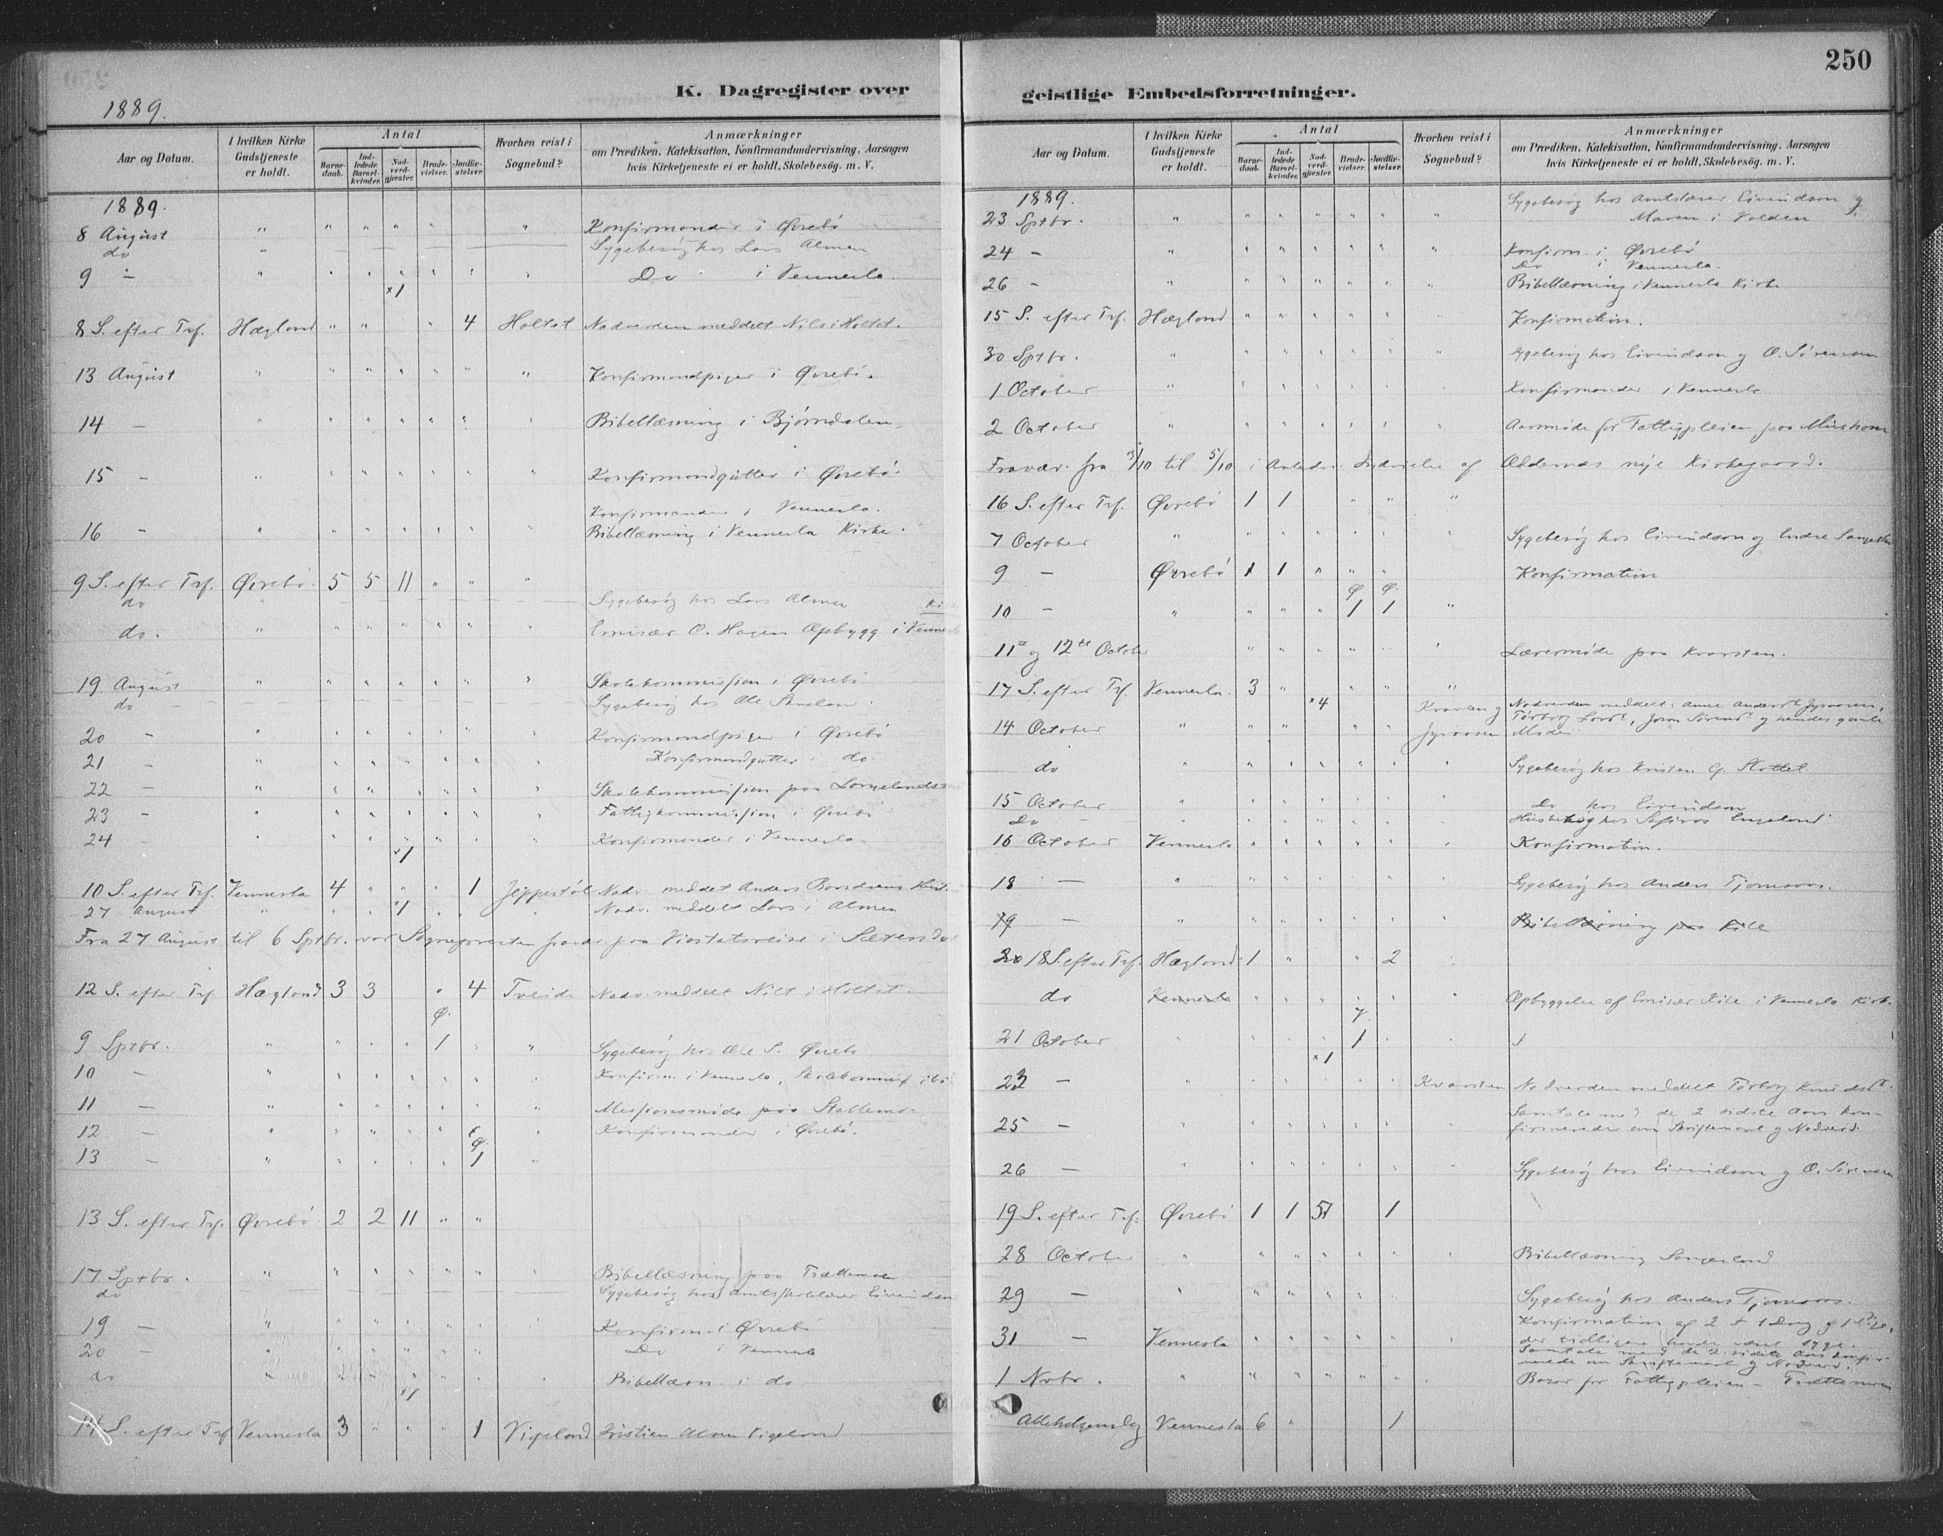 250
K. Dagregister over geistlige Embedsforretninger.
1889.
Aar og Datum. I hvilken Kirke Gudstjeneste er holdt. Antal Barnedaab. Indledede Barselkvinder. Nadverdgjæster. Brudevielser. Jordfæstelser. Hvorhen reist i Sognebud? Anmærkninger om Prædiken, Katekisation, Konfirmandundervisning, Aarsagen hvis Kirketjeneste ei er holdt, Skolebesøg. m. V.
1889.
8 August " " " " " " " Konfirmander i Øvrebø
do " Sygebesøg hos Lars Almen
9 - " " " " " " " Do i Vennesla
×1
8 S. efter Trf. Hægland " " " 4 Holtet Nadverden meddelt Nils i Holtet.
13 August " " " " " " " Konfirmandpiger i Øvrebø.
14 - " " " " " " " Bibellæsning i Bjørndalen.
15 - " " " " " " " Konfirmandgutter i Øvrebø.
Konfirmander i Vennesla.
16 - " " " " " " " Bibellæsning i Vennesla Kirke.
9 S. efter Trf. Øvrebø. 5 5 11 " " "
do Sygebesøg hos Lars Almen
do. " " " " " " " Emisær O. Hagen Opbygg i Vennesla
19 August " " " " " " " Skolekommission i Øvrebø
do - Sygebesøg hos Ole
20 - " " " " " " " Konfirmandpiger i Øvrebø
21 - " " " " " " " Konfirmandgutter i do.
22 - " " " " " " " Skolekommission paa
23 - " " " " " " " Fattigkommission i Øvrebø
24 - " " " " " " " Konfirmander i Vennesla
×1
10 S. efter Trf. Vennesla 4 " " " 1 Jeppestøl Nadv. meddelt Anders
27 August " ×1 " " Nadv. meddelt Lars i Almen
Fra 27 August til 6 Sptbr. var Sognepresten paa Visitatsreise i
12 S. efter Trf. Hægland 3 3 " 4 Tveide Nadv. meddelt Nils i Holtet.
Ø.
9 Sptbr. " " " " 1 " " Sygebesøg hos Ole S. Øvrebø
10 - " " " " " " " Konfirm. i Vennesla, Skolekommis.
11 - " " " " " " " Missionsmøde paa Stallemo.
12 - " " " " " " " Konfirmander i Øvrebø.
Ø.
13 - " " " " " 1 "
13 S. efter Trf. Øvrebø. 2 2 11 " "
17 Sptbr. " " " " " " " Bibellæsning paa Trættemoen
do Sygebesøg hos Amtsskolelærer Eivindson
19 - " " " " " " Konfirm. i Øvrebø
20 - " " " " " " Do i Vennesla
do " " " " " " Bibellæsn. i do
×1
14 S. efter Trf. Vennesla 3 " " " 1 Vigeland Vigeland
Aar og Datum. I hvilken Kirke Gudstjeneste er holdt. Antal Barnedaab. Indledede Barselkvinder. Nadverdgjæster. Brudevielser. Jordfæstelser. Hvorhen reist i Sognebud? Anmærkninger om Prædiken, Katekisation, Konfirmandundervisning, Aarsagen hvis Kirketjeneste ei er holdt, Skolebesøg. m. V.
1889. Sygebesøg hos Amtslærer Eivindson og
23 Sptbr. " " " " " " " Maren i Volden
24 - " " " " " " " Konfirm. i Øvrebø
Do i Vennesla.
26 - " " " " " " " Bibellæsning i Vennesla Kirke
15 S. efter Trf. Hægland " " " " " " Konfirmation.
30 Sptbr. " " " " " " " Sygebesøg hos Eivindson og O. Sørensen
1 October " " " " " " " Konfirmander i Vennesla
2 October " " " " " " " Aarmøde for Fattigpleien paa
Fravær. fra 3/10 til 5/10 i Anledn. Indvielse af Oddernæs nye Kirkegaard.
16 S. efter Trf. Øvrebø 1 1 " " "
7 October " " " " " " " Sygebesøg hos Eivindson og Endre
9 - Øvrebø 1 1 " " " Konfirmation
Ø. Ø.
10 - " " " " 1 1 "
11te og 12te October " " " " " Lærermøde paa Kvarsten.
17 S. efter Trf. Vennesla. 3 " " " "
×4 Nadverden meddelt: Anne Andersdt.
14 October " " " " " og hendes gamle Moder
do " " " " " " " Sygebesøg hos Kristen G. Slottet
15 October " " " " " " " Do hos Eivindson
Do - Husbesøg hos Engeland
16 October Vennesla " " " " " " Konfirmation.
18 - " " " " " " " Sygebesøg hos Anders Tjomsaas.
19 - " " " " " " " Bibellæsning paa Kile
20 18 S. efter Trf. Hægland. 1 " " 2 "
do Vennesla " " " " " " Opbyggelse af Emisær Kile i Vennesla Kirke.
V.
21 October " " " " 1 " "
×1
23 - " " " " " Kvarsten Nadverden meddelt Torborg Knudsdt.
Samtale med de 2 sidste Aars Kon-
25 - " " " " " " " firmerede om Skriftemaal og Nadverd.
26 - " " " " " " " Sygebesøg hos Eivindson og O. Sørensen
19 S. efter Trf. Øvrebø 1 1 57 1
28 October " " " " " " " Bibellæsning
29 - " " " " " " " Sygebesøg hos Anders Tjomsaas.
Konfirmation af 2 + 1 Dreng og 1 Pige,
31 - Vennesla " " " " " " der tidligere havde været syge.
Samtale med de 2 sidste Aars Konfir-
merede om Skriftemaal og Nadverd.
1 Novbr. " " " " " " " Bazar for Fattigpleien - Trættemoen
Allehelgensdag Vennesla 6 " 1